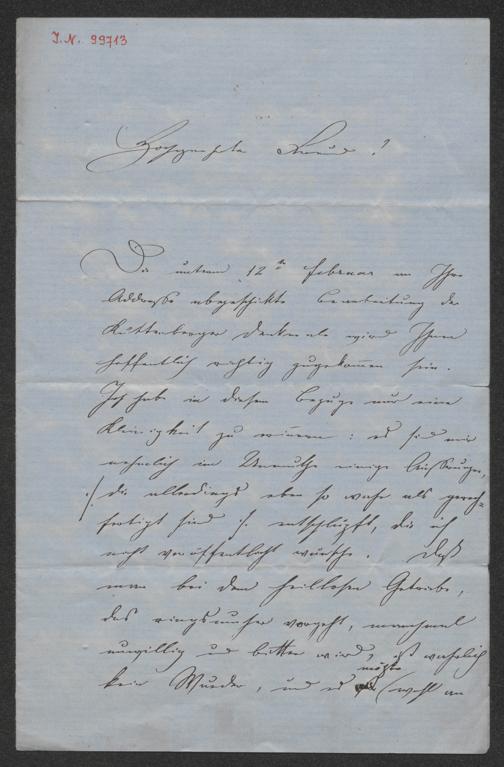 J. N. 99713
Hochgeehrter Freund!
Die unterm 12ten Februar an Ihre
Addresse abgeschikte Bearbeitung der
Kuttenberger Denkmale wird Ihnen
hoffentlich richtig zugekommen sein.
Ich habe in diesem Bezuge nur eine
Kleinigkeit zu erinnern: es sind mir
nehmlich im Unmuthe einige
./ die allerdings eben so wahr als gerech-
fertigt sind ./. entschlüpft, die ich
nicht veröffentlicht wünsche. Daß
man bei dem heillosen Getriebe,
das ringsumher vorgeht, manchmal
unwillig und bitter wird, ist wahrlich
kein Wunder, und es möchte (wohl an